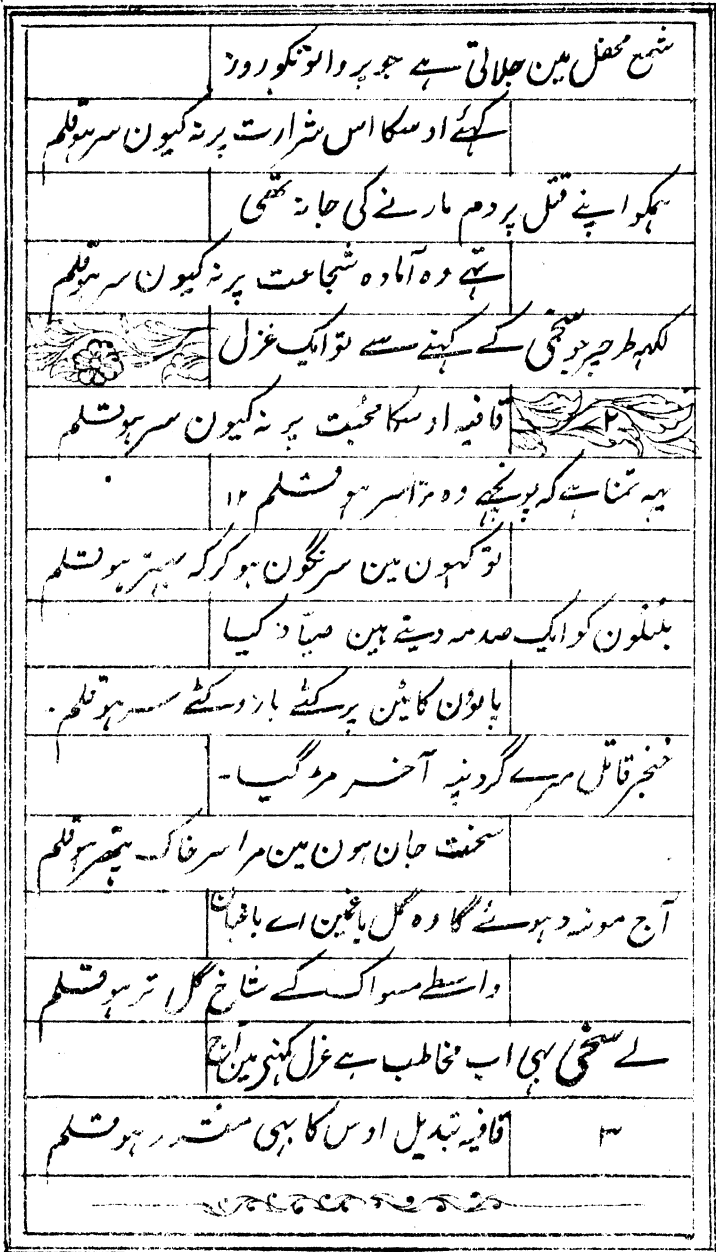 شمع محفل مین جلاتی ہے جو پروانونکو روز
کہئے اوسکا اس شرارت پر نہ کیون سر ہو قلم
ہمکو اپنے قتل پر دم مارنے کی جا نہ تھی
تہے وہ آمادہ شجاعت پر نہ کیون سر ہو قلم
لکہہ طرحپر جو سخمی کے کہنے سے تو ایک غزل
۲
قافیہ اوسکا محبت پر نہ کیون سر ہو قلم
یہہ تمنا ہے کہ پونچہے وہ مرا سر ہو قلم ۱۲
تو کہون مین سرنگون ہو کر کہ بہتر ہو قلم
بلبلون کو ایک صدمہ دیتے ہین صیّاد کیا
پانوٴن کاٹین پر کٹے بازو کٹے سر ہو قلم
خنجر قاتل مرے گردنپہ آخر مڑ گیا۔
سخت جان ہون مین مرا سر خاک پتھر ہو قلم
آج مونہہ دہوئے گا وہ گل باغمین اے باغبان
واسطے مسواک کے شاخ گل تر ہو قلم
لے سخمی بہی اب مخاطب ہے غزل کہنے مین آج
۳
قافیہ تبدیل اوس کا بہی مقرر ہو قلم